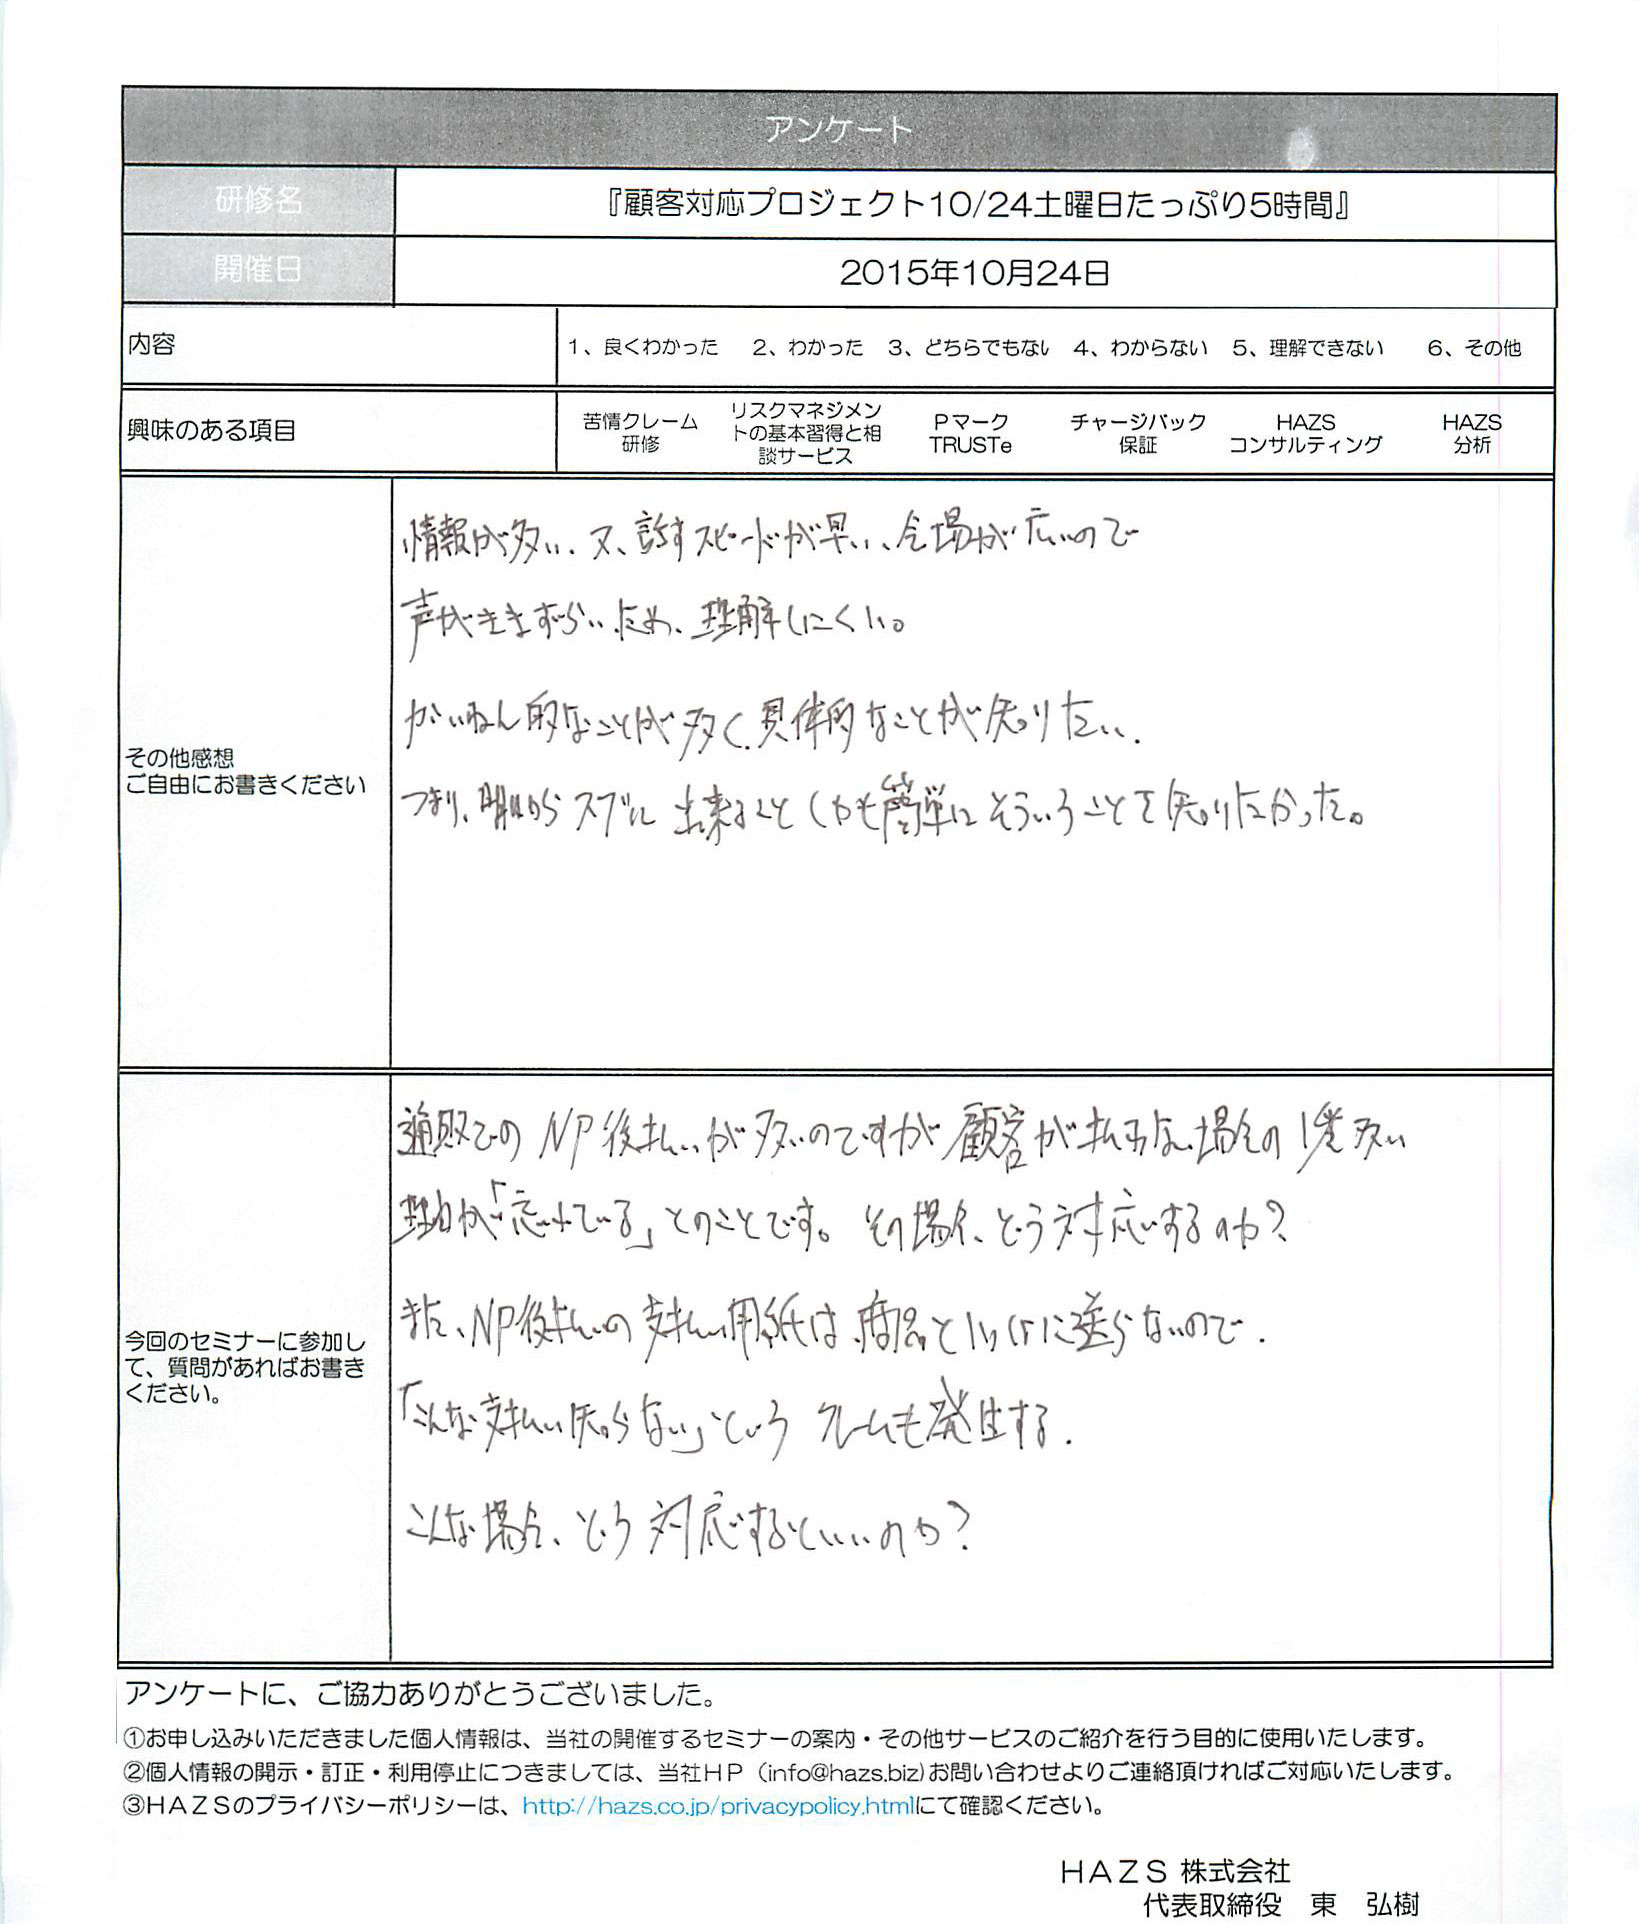 アンケート
研修名
『顧客対応プロジェクト10/24土曜日たっぷり5時間』
開催日
2015年10月24日
内容
1、良くわかった 2、わかった 3、どちらでもない 4、わからない 5、理解できない 6、その他
興味のある項目
苦情クレーム
研修
リスクマネジメン
トの基本習得と相
談サービス
Pマーク
TRUSTe
チャージバック
保証
HAZS
コンサルティング
HAZS
分析
その他感想
ご自由にお書きください
情報が多い、又、話すスピードが早い、会場が広いので
声がききずらいため、理解しにくい。
がいねん的なことが多く、具体的なことが知りたい、
つまり、明日からスグに出来ること しかも簡単に そういうことを知りたかった。
今回のセミナーに参加し
て、質問があればお書き
ください。
通販でのNP後払いが多いのですが顧客が払わない場合の1番多い
理由が「忘れている」とのことです。その場合、どう対応するのか?
また、NP後払いの支払い用紙は、商品といっしょに送らないので、
「こんな支払い知らない」という クレームも発生する.
こんな場合、どう対応するといいのか?
アンケートに、ご協力ありがとうございました。
①お申し込みいただきました個人情報は、当社の開催するセミナーの案内・その他サービスのご紹介を行う目的に使用いたします。
②個人情報の開示・訂正・利用停止につきましては、当社ＨＰ（info@hazs.biz)お問い合わせよりご連絡頂ければご対応いたします。
③ＨＡＺＳのプライバシーポリシーは、http://hazs.co.jp/privacypolicy.htmlにて確認ください。
ＨＡＺＳ 株式会社
代表取締役　東　弘樹